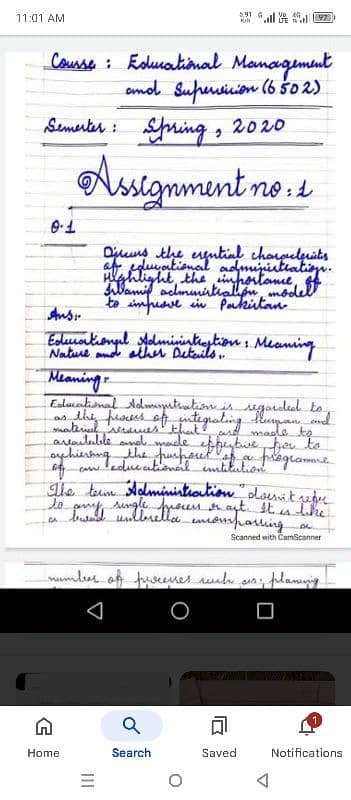 11:01 AM
5.91 K/s G Vo LTE 4G 97
Course : Educational Management
and Supervision (6502)
Semester : Spring, 2020
Assignment no : 1
Q.1
Discuss the essential characteristics
of educational administration.
Highlight the importance of
Islamic administration model
to improve in Pakistan.
Ans:-
Educational Administration : Meaning
Nature and other Details:.
Meaning:
Educational Administration is regarded to
as the process of integrating human and
material resources that are made to
available and made effective for to
achieving the purpose of a programme
of an educational institution
The term "Administration" doesn't refer
to any single process or act. It is like
a broad umbrella encompassing a
Scanned with CamScanner
number of processes such as: planning
Home
Search
Saved
1
Notifications